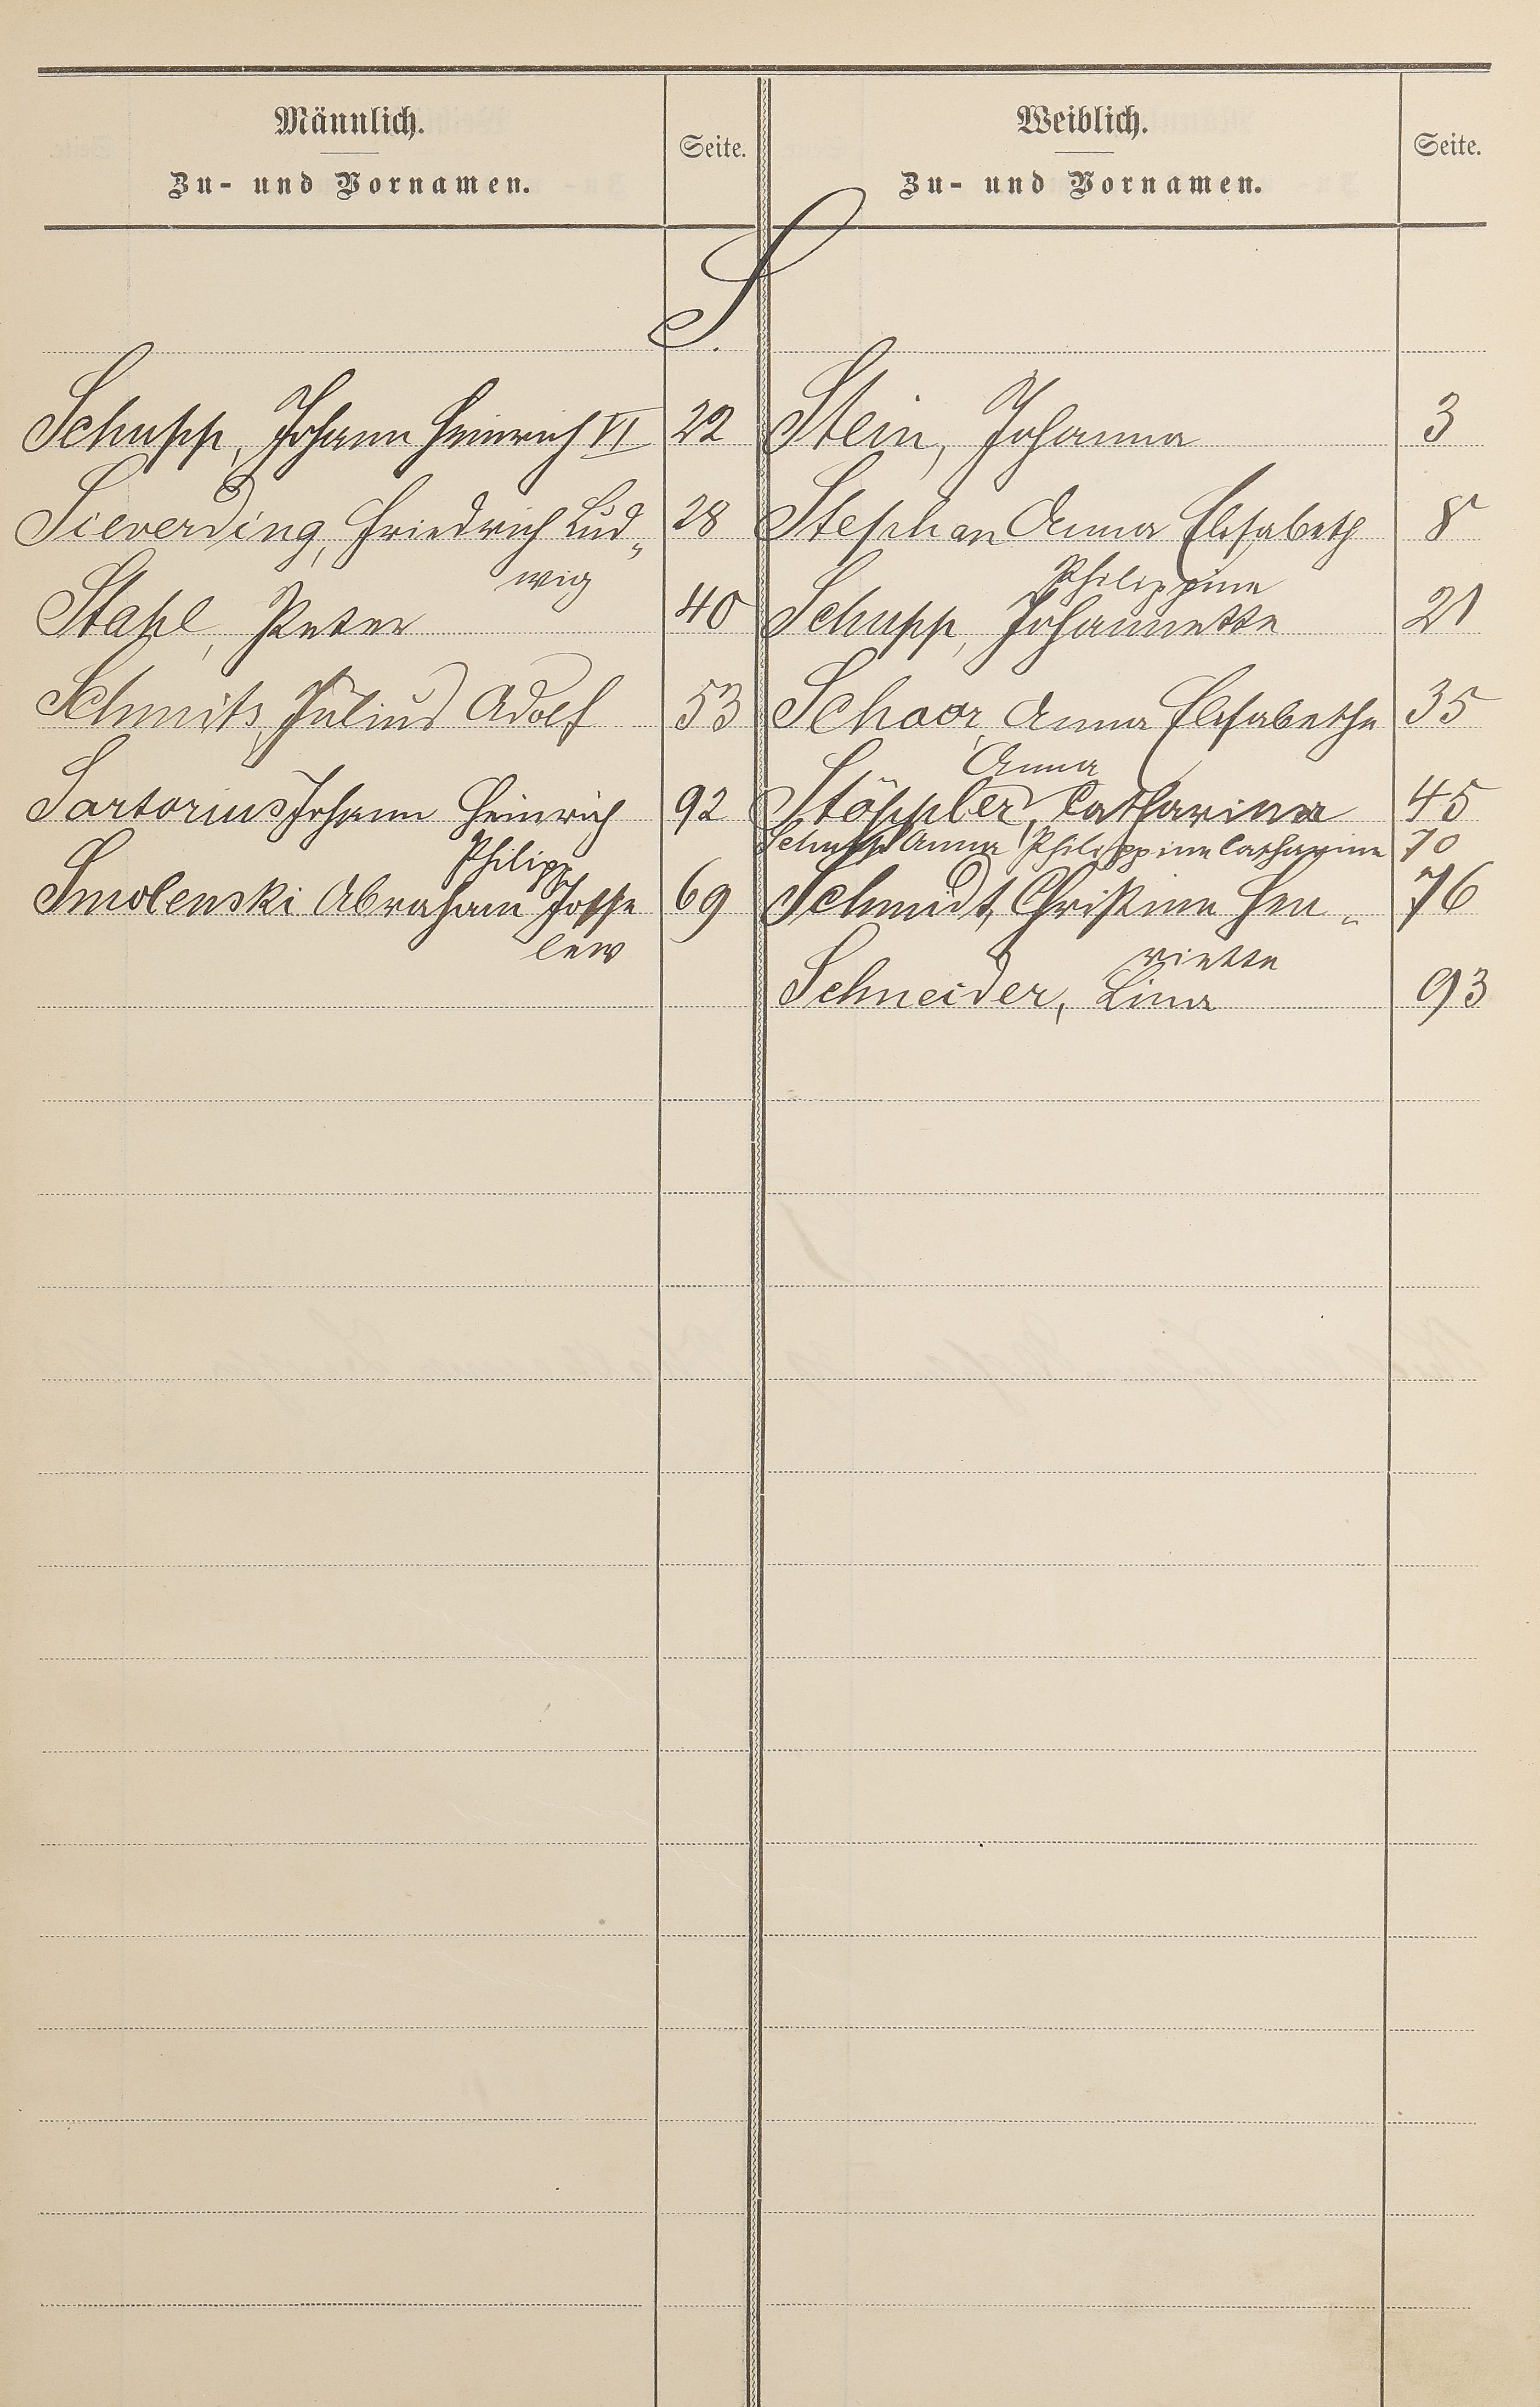 Männlich.
Zu- und Vornamen.
Seite.
Weiblich.
Zu- und Vornamen.
Seite.
S.
Schupp, Johann Heinrich VI 22
Sieverding, Friedrich Lud„ 28
wig
Stahl, Peter 40
Schmits, Julius Adolf 53
Sartorius Johann Heinrich 92
Philipp
Smolenski Abraham Josse 69
lew
Stein, Johanna 3
Stephan Anna Elisabeth 8
Philippine
Schupp, Johannette 21
Schaar, Anna Elisabethe 35
Anna
Stöppler, Catharina 45
Schupp Anna Philippine Catharine 70
Schmidt, Christine Hen„ 76
riette
Schneider, Lina 93